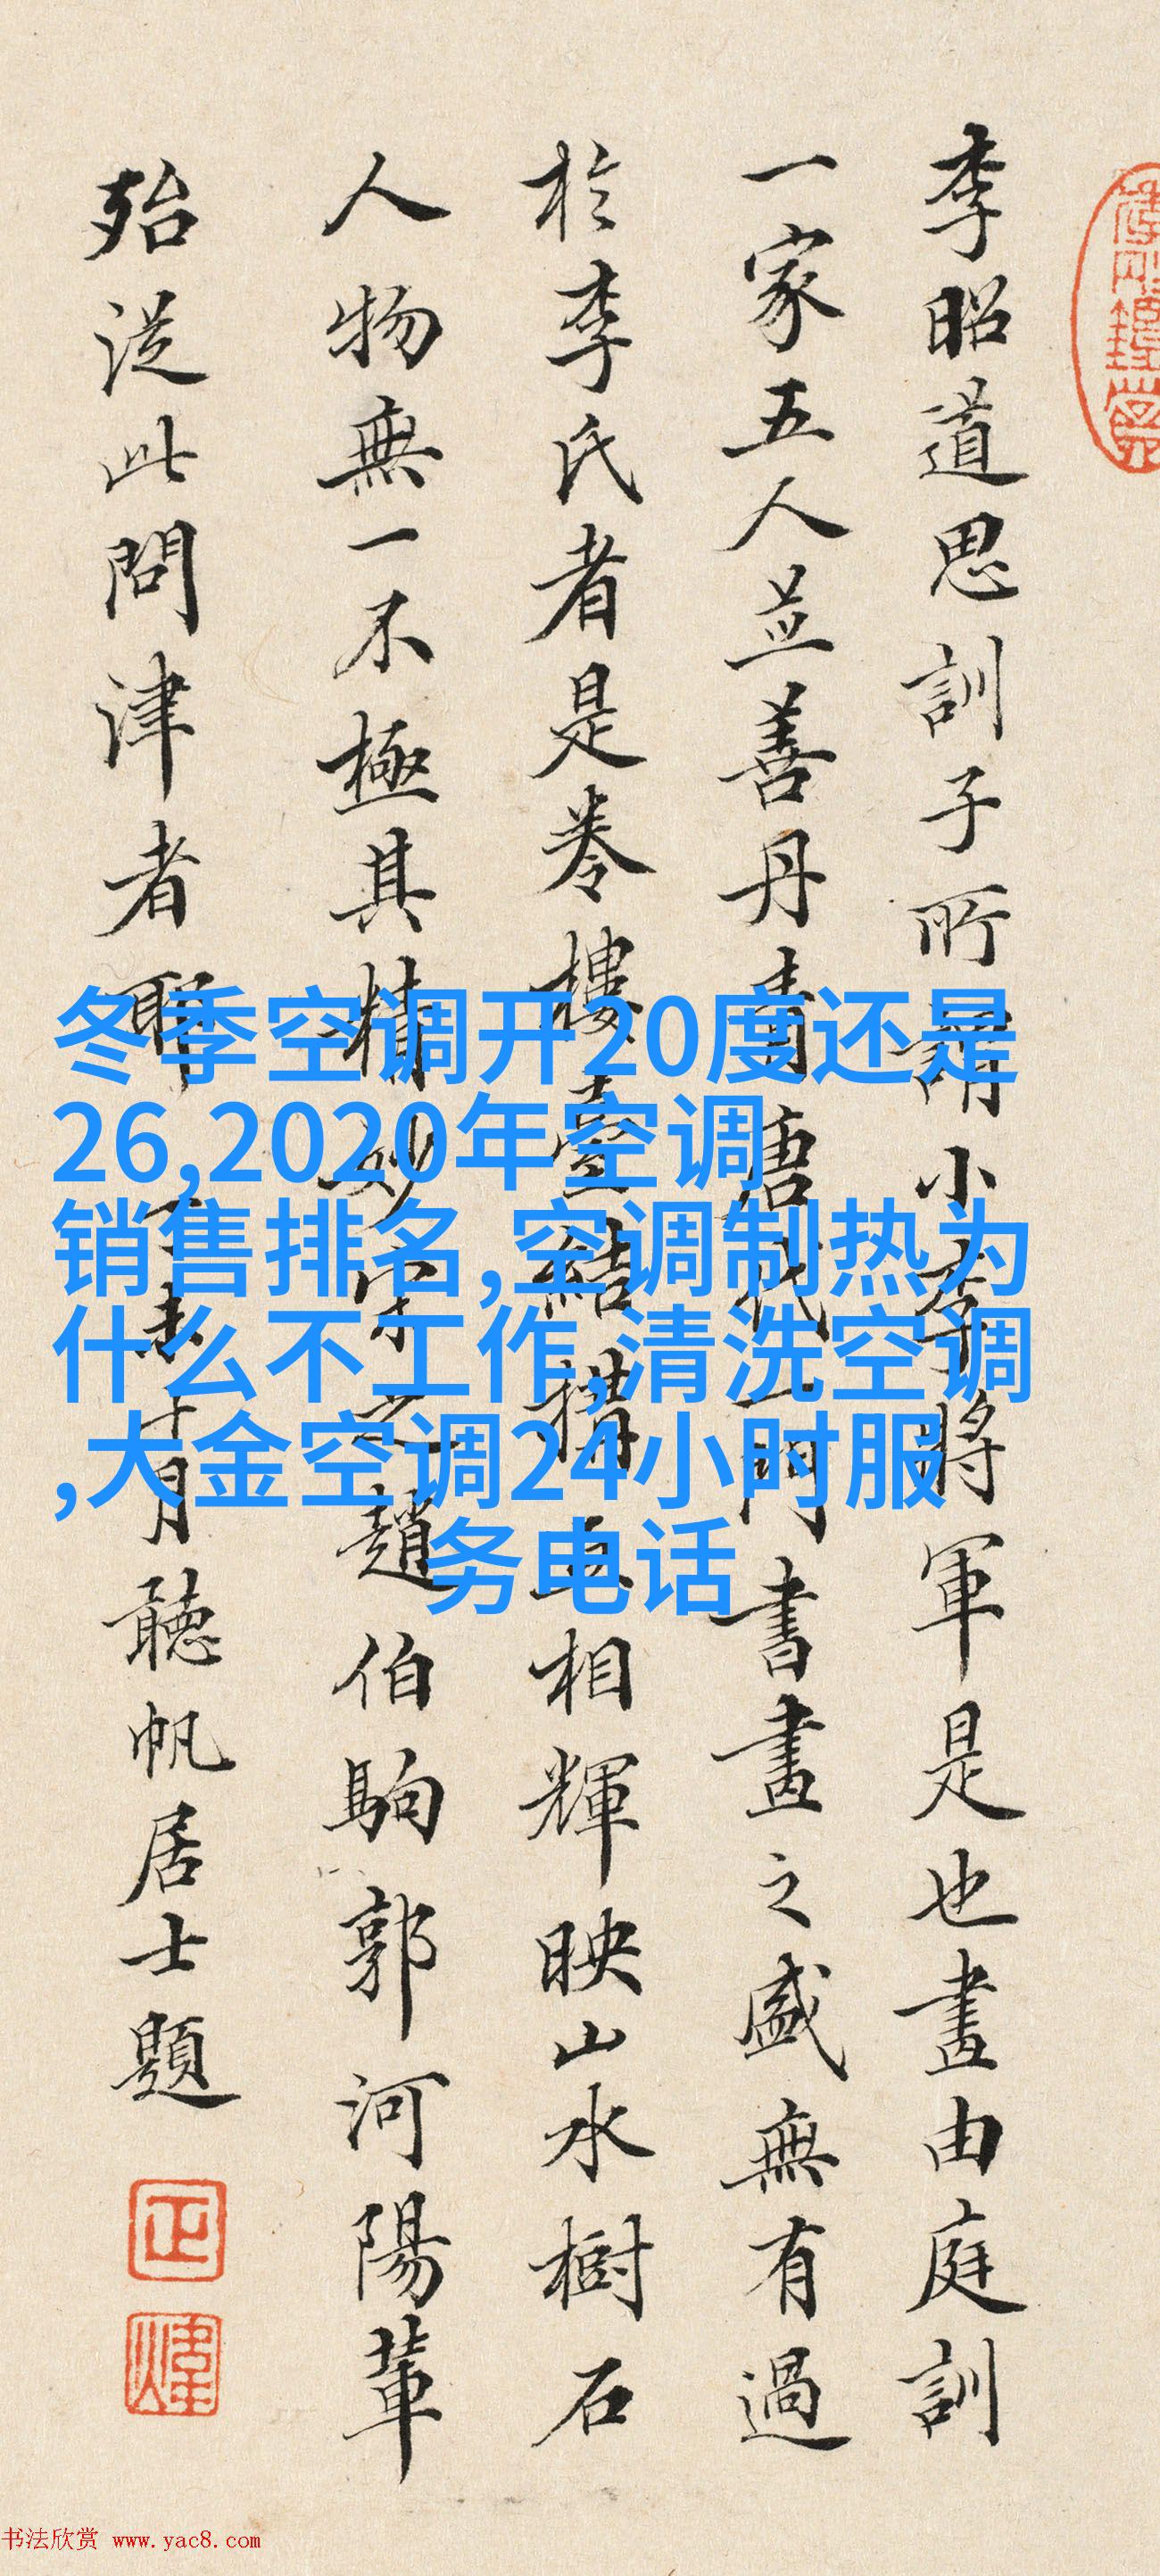 李昭道思訓子所謂小李將軍是也畫由庭訓
一家五人並善丹青唐代一門書畫之盛無有過
於李氏者是卷樓臺結構相輝映山水樹石
人物無一不極其精妙宋之趙伯駒郭河陽輩
殆從此問津者耶
十月聽帆居士題
冬季空调开20度还是
26,2020年空调
销售排名,空调制热为
什么不工作,清洗空调
,大金空调24小时服
务电话
书法欣赏 www.yac8.com